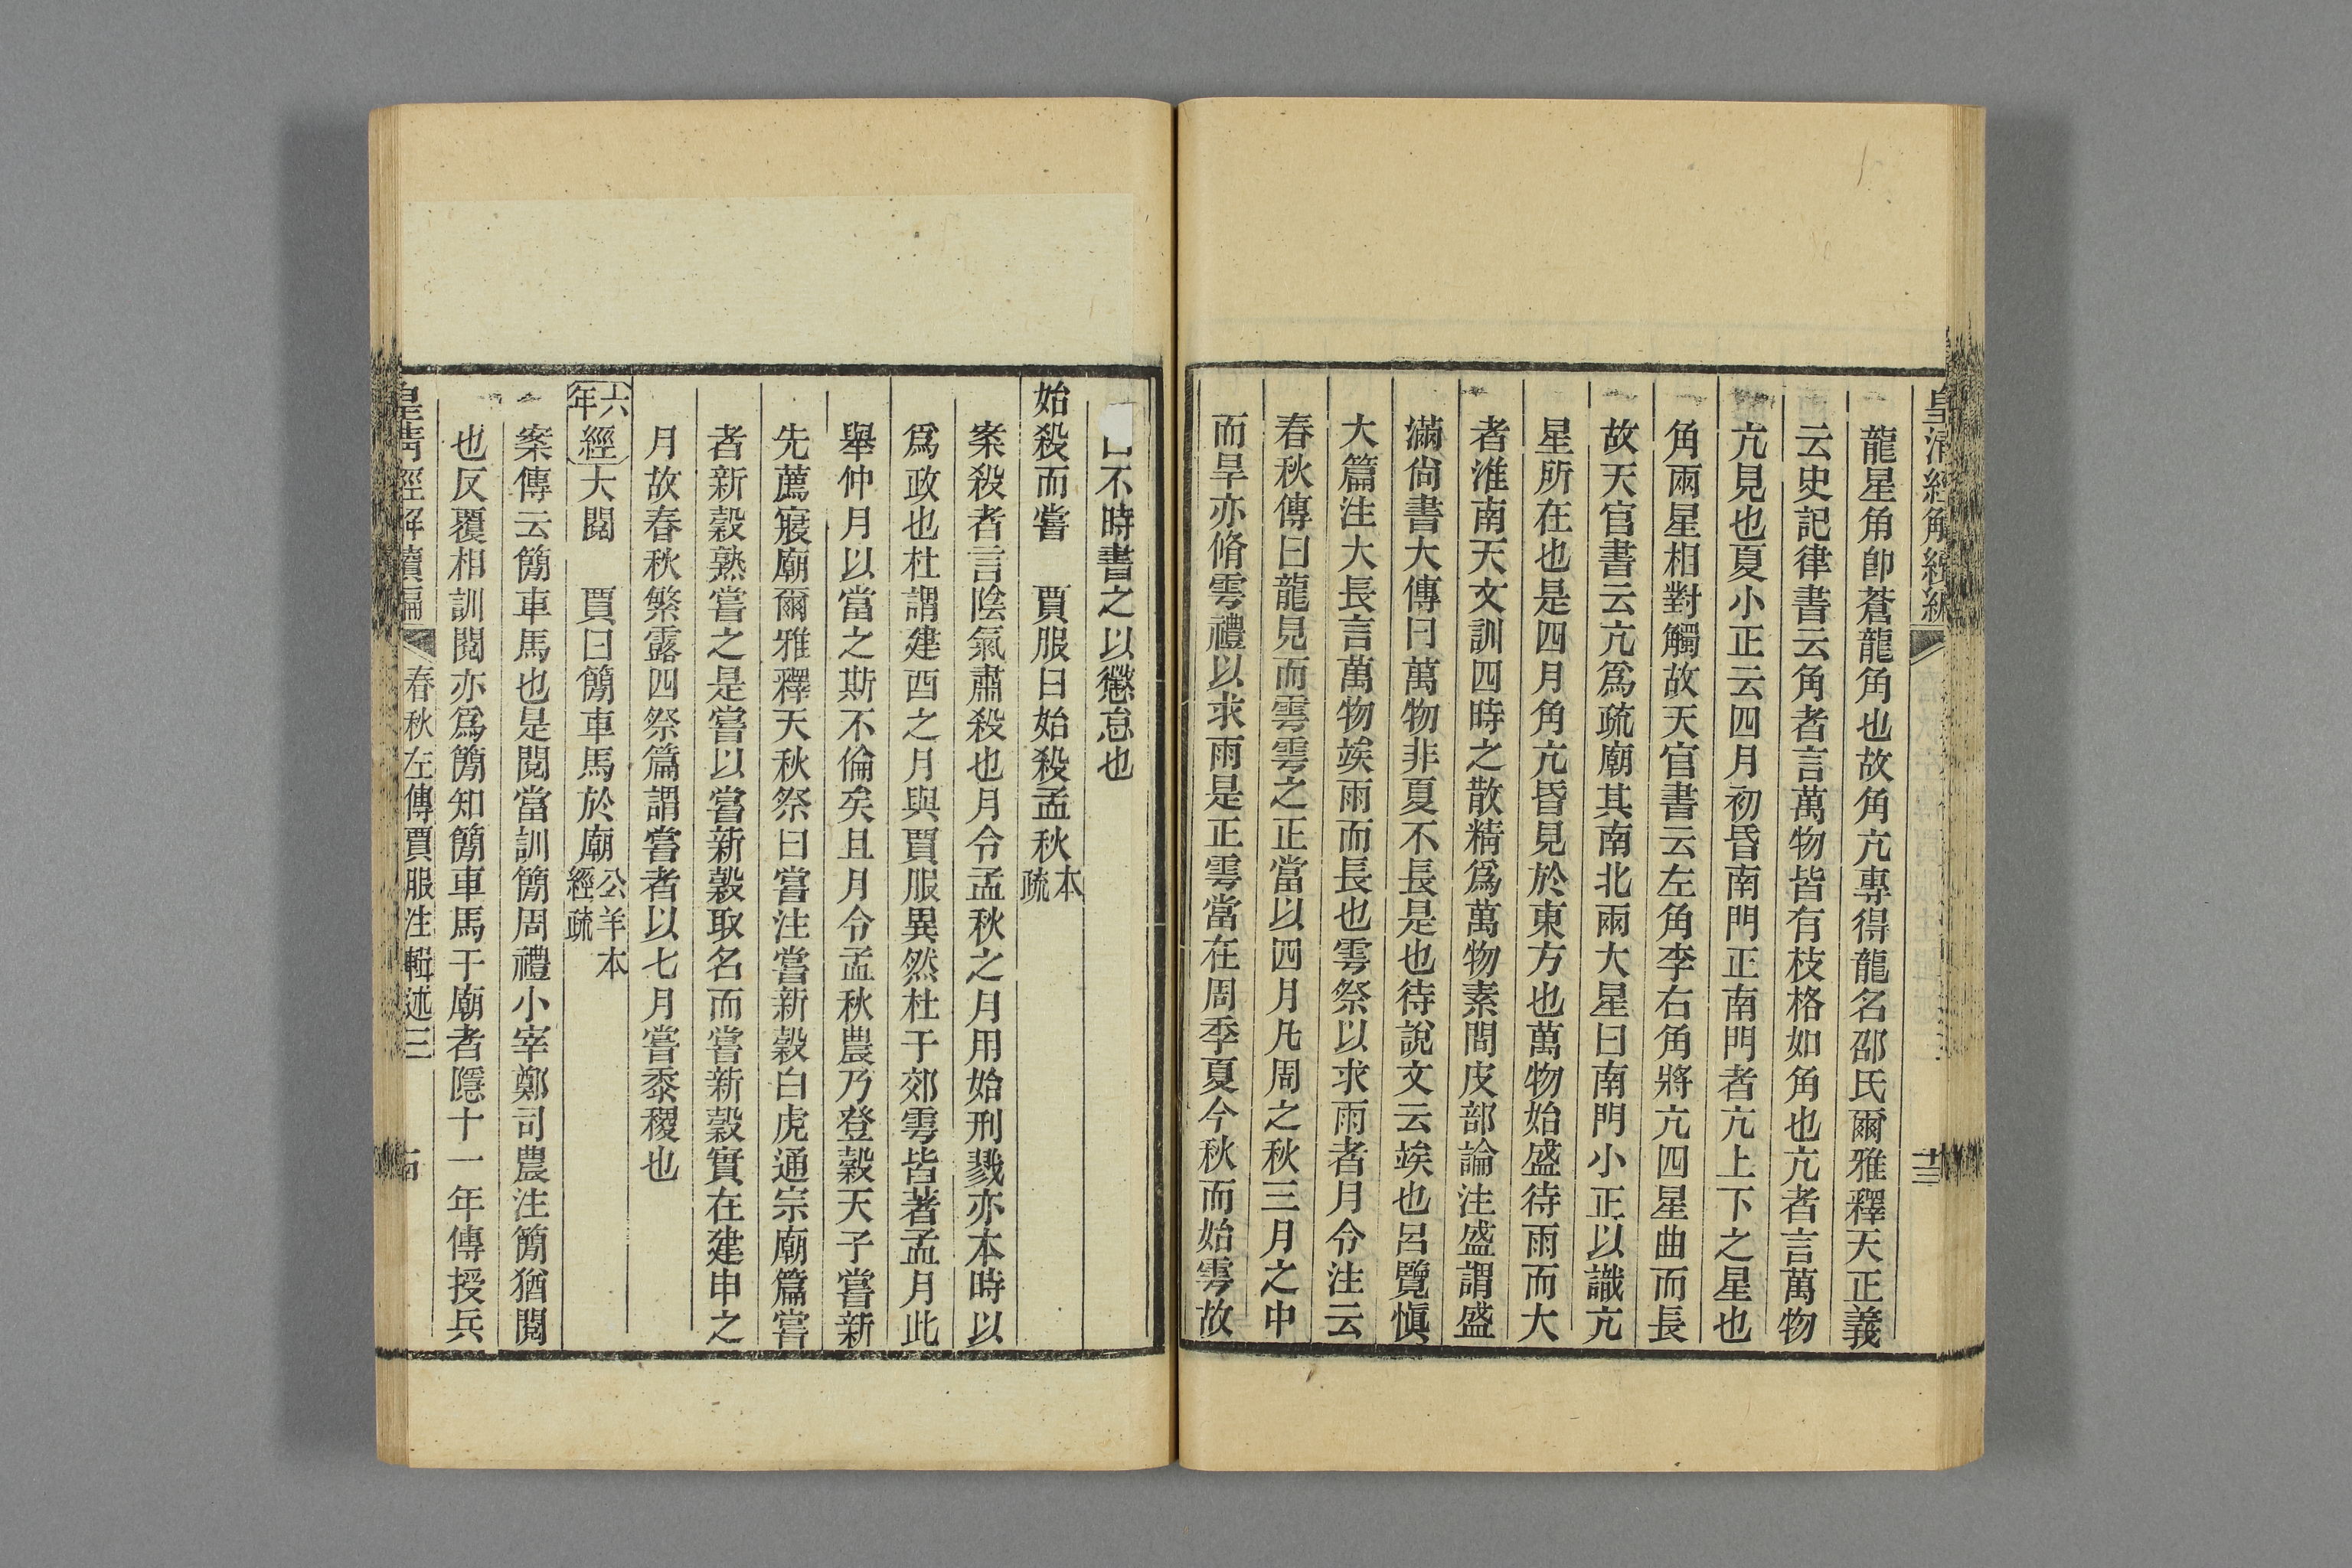 皇清經解續編
龍星角卽蒼龍角也故角亢專得龍名邵氏爾雅釋天正義
云史記律書云角者言萬物皆有枝格如角也亢者言萬物
亢見也夏小正云四月初昏南門正南門者亢上下之星也
角兩星相對觸故天官書云左角李右角將亢四星曲而長
故天官書云亢爲疏廟其南北兩大星曰南門小正以識亢
星所在也是四月角亢昏見於東方也萬物始盛待雨而大
者淮南天文訓四時之散精爲萬物素問皮部論注盛謂盛
滿尙書大傳曰萬物非夏不長是也待說文云竢也呂覽愼
大篇注大長言萬物竢雨而長也雩祭以求雨者月令注云
春秋傳曰龍見而雩雩之正當以四月凡周之秋三月之中
而旱亦脩雩禮以求雨是正雩當在周季夏今秋而始雩故
十三
不時書之以懲怠也
始殺而嘗　賈服曰始殺孟秋本疏
案殺者言陰氣肅殺也月令孟秋之月用始刑戮亦本時以
爲政也杜謂建酉之月與賈服異然杜于郊雩皆著孟月此
舉仲月以當之斯不倫矣且月令孟秋農乃登穀天子嘗新
先薦寢廟爾雅釋天秋祭曰嘗注嘗新穀白虎通宗廟篇嘗
者新穀熟嘗之是嘗以嘗新穀取名而嘗新穀實在建申之
月故春秋繁露四祭篇謂嘗者以七月嘗黍稷也
六年經大閱　賈曰簡車馬於廟公羊本經疏
案傳云簡車馬也是閱當訓簡周禮小宰鄭司農注簡猶閱
也反覆相訓閱亦爲簡知簡車馬于廟者隱十一年傳授兵
皇清經解續編　春秋左傳賈服注輯述三